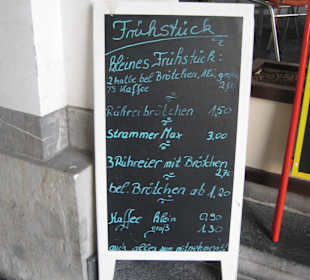 Frühstück
kleines Frühstück:
2 halbe bel. Brötchen, 1 Ei,
75 Kaffee
Rühreibrötchen 1,50
Strammer Max 3,00
3 Rühreier mit Brötchen
2,70
bel. Brötchen ab 1,20
Kaffee klein 0,90
groß 1.30
auch alles zum mitnehmen!!